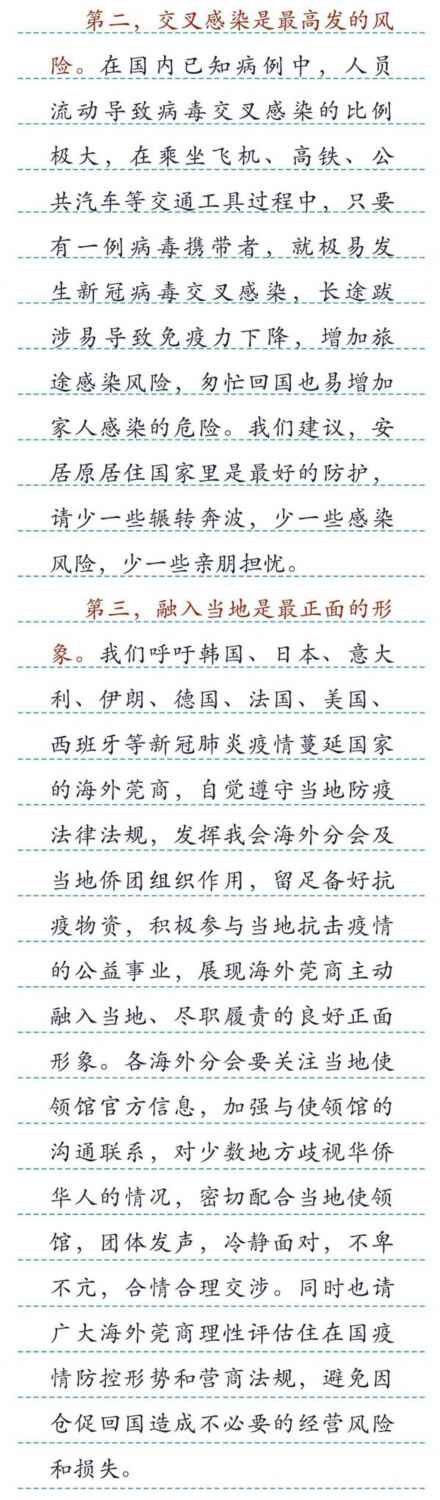 第二，交叉感染是最高发的风
险。在国内已知病例中，人员
流动导致病毒交叉感染的比例
极大，在乘坐飞机、高铁、公
共汽车等交通工具过程中，只要
有一例病毒携带者，就极易发
生新冠病毒交叉感染，长途跋
涉易导致免疫力下降，增加旅
途感染风险，匆忙回国也易增加
家人感染的危险。我们建议，安
居原居住国家里是最好的防护，
请少一些辗转奔波，少一些感染
风险，少一些亲朋担忧。
第三，融入当地是最正面的形
象。我们呼吁韩国、日本、意大
利、伊朗、德国、法国、美国、
西班牙等新冠肺炎疫情蔓延国家
的海外莞商，自觉遵守当地防疫
法律法规，发挥我会海外分会及
当地侨团组织作用，留足备好抗
疫物资，积极参与当地抗击疫情
的公益事业，展现海外莞商主动
融入当地、尽职履责的良好正面
形象。各海外分会要关注当地使
领馆官方信息，加强与使领馆的
沟通联系，对少数地方歧视华侨
华人的情况，密切配合当地使领
馆，团体发声，冷静面对，不卑
不亢，合情合理交涉。同时也请
广大海外莞商理性评估住在国疫
情防控形势和营商法规，避免因
仓促回国造成不必要的经营风险
和损失。